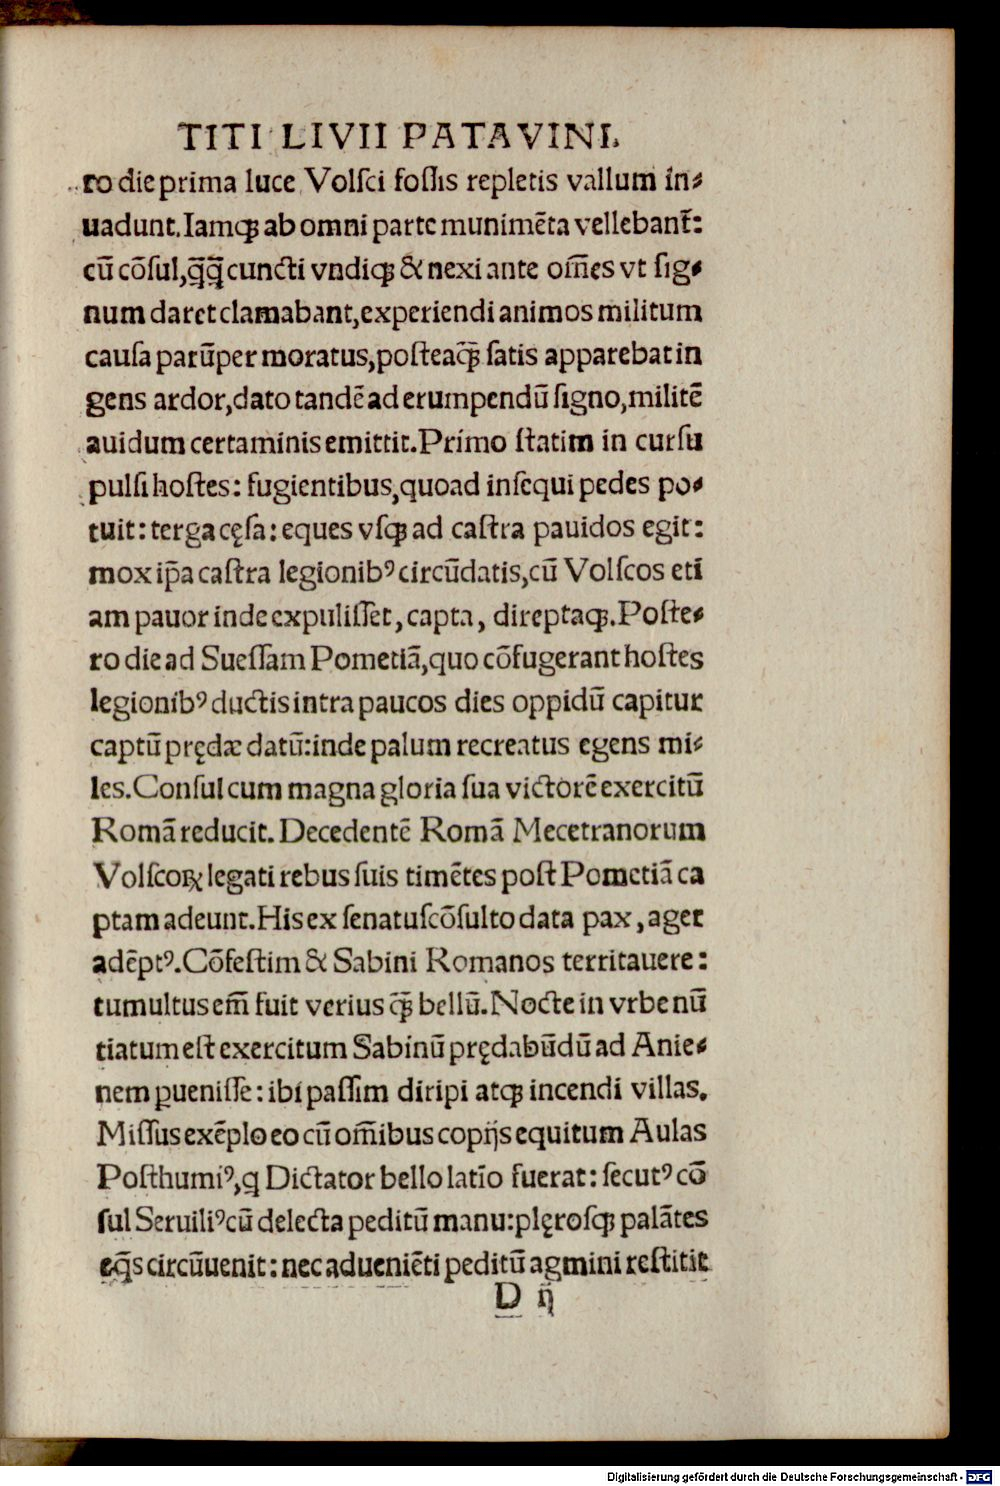 TITI LIVII PATAVINI.
ro die prima luce Volſci foſſis repletis vallum in⸗
uadunt. Iamqꝫ ab omni parte munimēta vellebant̄:
cū cōſul, q̄q̄ cuncti vndiqꝫ & nexi ante om̄es vt ſig⸗
num daret clamabant, experiendi animos militum
cauſa parūper moratus, poſteaq̄ꝫ ſatis apparebat in
gens ardor, dato tandē ad erumpendū ſigno, militē
auidum certaminis emittit. Primo ſtatim in curſu
pulſi hoſtes: fugientibus, quoad inſequi pedes po⸗
tuit: terga cęſa: eques vſqꝫ ad caſtra pauidos egit:
mox ip̄a caſtra legionibꝰ circūdatis, cū Volſcos eti
am pauor inde expuliſſet, capta, direptaqꝫ. Poſte⸗
ro die ad Sueſſam Pometiā, quo cōfugerant hoſtes
legionibꝰ ductis intra paucos dies oppidū capitur
captū prędæ datū: inde palum recreatus egens mi⸗
les. Conſul cum magna gloria ſua victorē exercitū
Romā reducit. Decedentē Romā Mecetranorum
Volſcoꝝ legati rebus ſuis timētes poſt Pometiā ca
ptam adeunt. His ex ſenatuſcōſulto data pax, ager
adēptꝰ. Cōfeſtim & Sabini Romanos territauere:
tumultus em̄ fuit verius q̄ꝫ bellū. Nocte in vrbe nū
tiatum eſt exercitum Sabinū prędabūdū ad Anie⸗
nem ꝑueniſſe: ibi paſſim diripi atqꝫ incendi villas.
Miſſus exēplo eo cū om̄ibus copijs equitum Aulas
Poſthumiꝰ, q Dictator bello latīo fuerat: ſecutꝰ cō
ſul Seruiliꝰ cū delecta peditū manu: plęroſqꝫ palātes
eq̄s circūuenit: nec adueniēti peditū agmini reſtitit
D ij
Digitalisierung gefördert durch die Deutsche Forschungsgemeinschaft - DFG